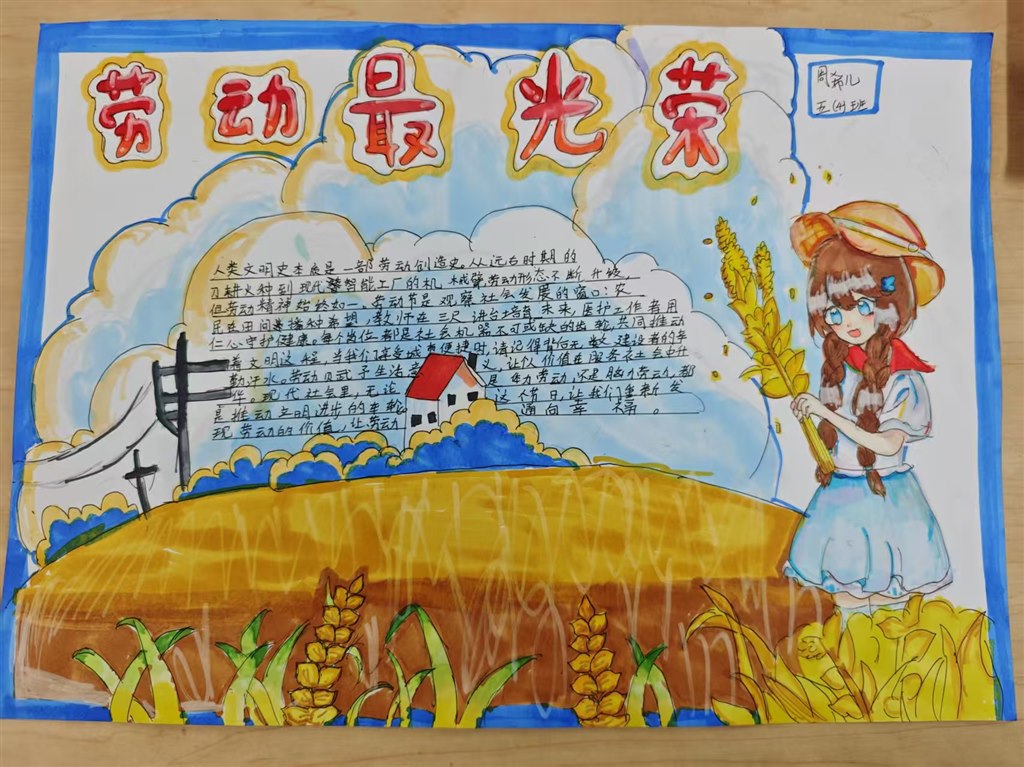 劳动最光荣
周郑儿
五(4)班
人类文明史本质是一部劳动创造史。从远古时期的
刀耕火种到现代智能工厂的机械臂,劳动形态不断升级,
但劳动精神始终如一。劳动节是观察社会发展的窗口:农
民在田间播种希望,教师在三尺讲台培育未来,医护工作者用
仁心守护健康。每个岗位都是社会机器不可或缺的齿轮,共同推动
着文明这 当我们享受城市便捷时,请记得背后无数建设者的辛
勤汗水。劳动 予生活意义,让 价值在服务社会中升
华。现代社会里,无论是体力劳动,还是脑力劳动,都
是推动文明进步的车轮 这个节日,让我们重新发
现劳动的价值,让劳动 通向幸福。